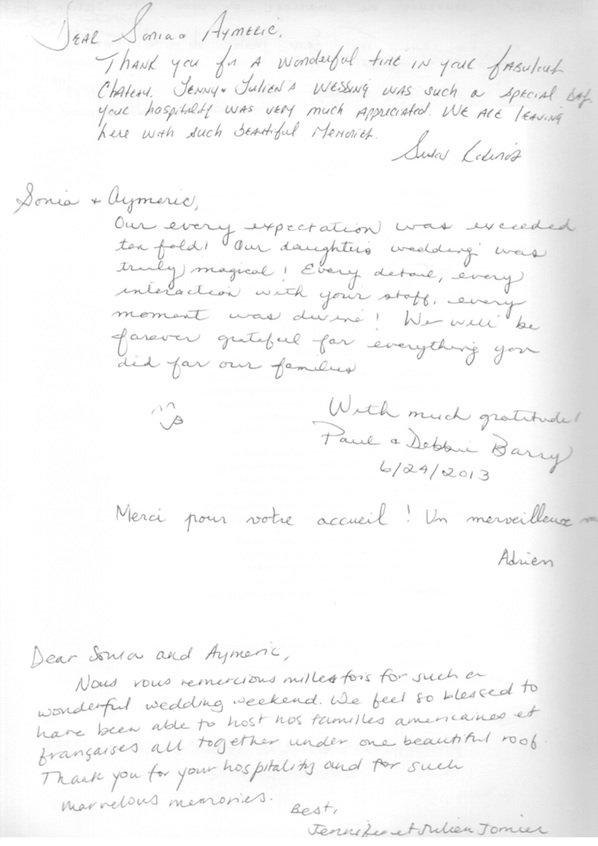 Dear Sonia & Aymeric.
Thank you for a wonderful time in your fabulous
Chateau. Jenny & Julien's wedding was such a special day.
your hospitality was very much appreciated. We are leaving
here with such beautiful memories.
Susan
Sonia & Aymeric,
Our every expectation was exceeded
ten fold! Our daughters wedding was
truly magical! Every detail, every
interaction with your staff, every
moment was divine! We will be
forever grateful for everything you
did for our families
With much gratitude!
Paul & Debbie Barry
6/24/2013
Merci pour votre accueil ! Un merveilleux
Adrien
Dear Sonia and Aymeric,
Nous vous remercious milles fois for such a
wonderful wedding weekend. We feel so blessed to
have been able to host nos familles americaines et
françaises all together under one beautiful roof.
Thank you for your hospitality and for such
marvelous memories.
Best,
Jennifer et Julien Jomier